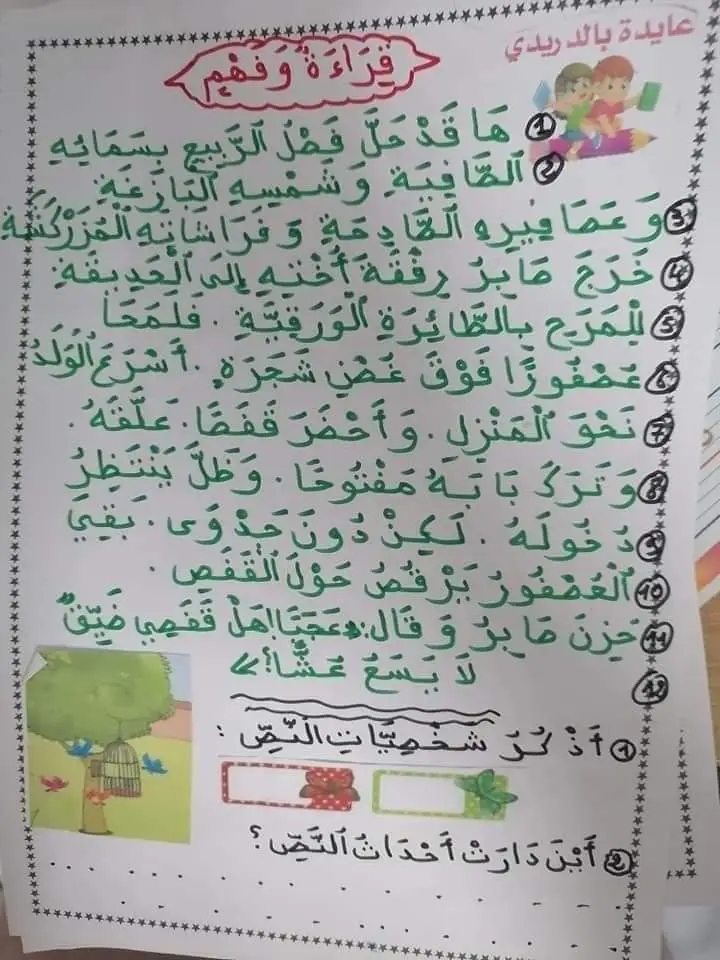 عايدة بالدريدي
قِرَاءَةٌ وَفَهْمٌ
1 هَا قَدْ حَلَّ فَصْلُ الرَّبِيعِ بِسَمَائِهِ
2 الصَّافِيَةِ وَشَمْسِهِ الْبَازِغَةِ
3 وَعَصَافِيرِهِ الصَّادِحَةِ وَفَرَاشَاتِهِ الْمُزَرْكَشَةِ
4 خَرَجَ صَابِرُ رِفْقَةَ أُخْتِهِ إِلَى الْحَدِيقَةِ
5 لِلْمَرَحِ بِالطَّائِرَةِ الْوَرَقِيَّةِ . فَلَمَحَا
6 عُصْفُورًا فَوْقَ غُصْنِ شَجَرَةٍ . أَسْرَعَ الْوَلَدُ
7 نَحْوَ الْمَنْزِلِ . وَأَحْضَرَ قَفَصًا . عَلَّقَهُ .
8 وَتَرَكَ بَابَهُ مَفْتُوحًا . وَظَلَّ يَنْتَظِرُ
9 دُخُولَهُ . لَكِنْ دُونَ جَدْوَى . بَقِيَ
10 الْعُصْفُورُ يَرْقُصُ حَوْلَ الْقَفَصِ .
11 حَزِنَ صَابِرُ وَقَالَ: «عَجَبًا! هَلْ قَفَصِي ضَيِّقٌ
12 لَا يَسَعُ عُشًّا؟»
1 أَذْكُرُ شَخْصِيَّاتِ النَّصِّ :
2 أَيْنَ دَارَتْ أَحْدَاثُ النَّصِّ ؟